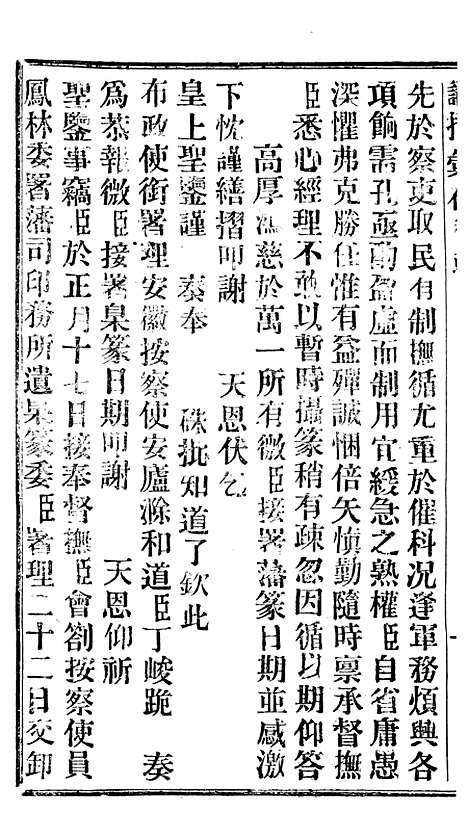 先於察吏取民有制撫循尤重於催科況逢軍務煩興各
項餉需孔亟動盈虛而制用宜緩急之熟權臣自省庸愚
深懼弗克勝任惟有益殫誠悃倍矢慎勤隨時禀承督撫
臣悉心經理不敢以暫時攝篆稍有疎忽因循以期仰答
高厚鴻慈於萬一所有微臣接署藩篆日期並感激
下忱謹繕摺叩謝 天恩伏乞
皇上聖鑒謹 奏奉 硃批知道了欽此
布政使銜署理安徽按察使安廬滁和道臣丁峻跪 奏
爲恭報微臣接署臬篆日期叩謝 天恩仰祈
聖鑒事竊臣於正月十七日接奉督撫臣會劄按察使員
鳳林委署藩司印務所遺臬篆委臣署理二十二日交卸